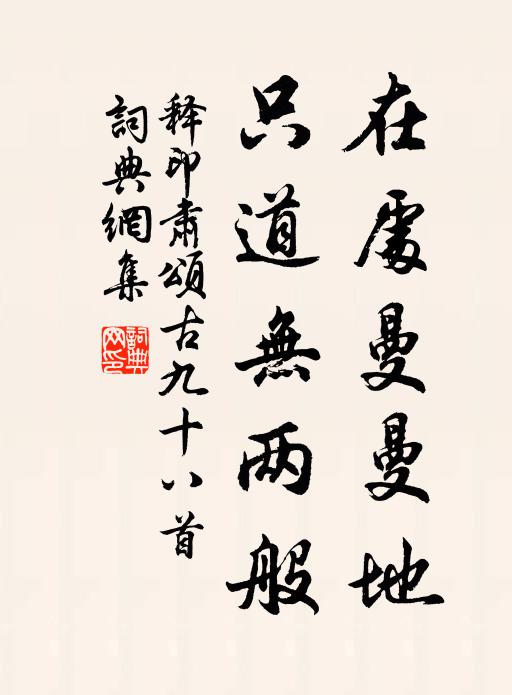 在處曼曼地
只道無两般
释印肃頌古九十八首
詞典網集
詞典网印